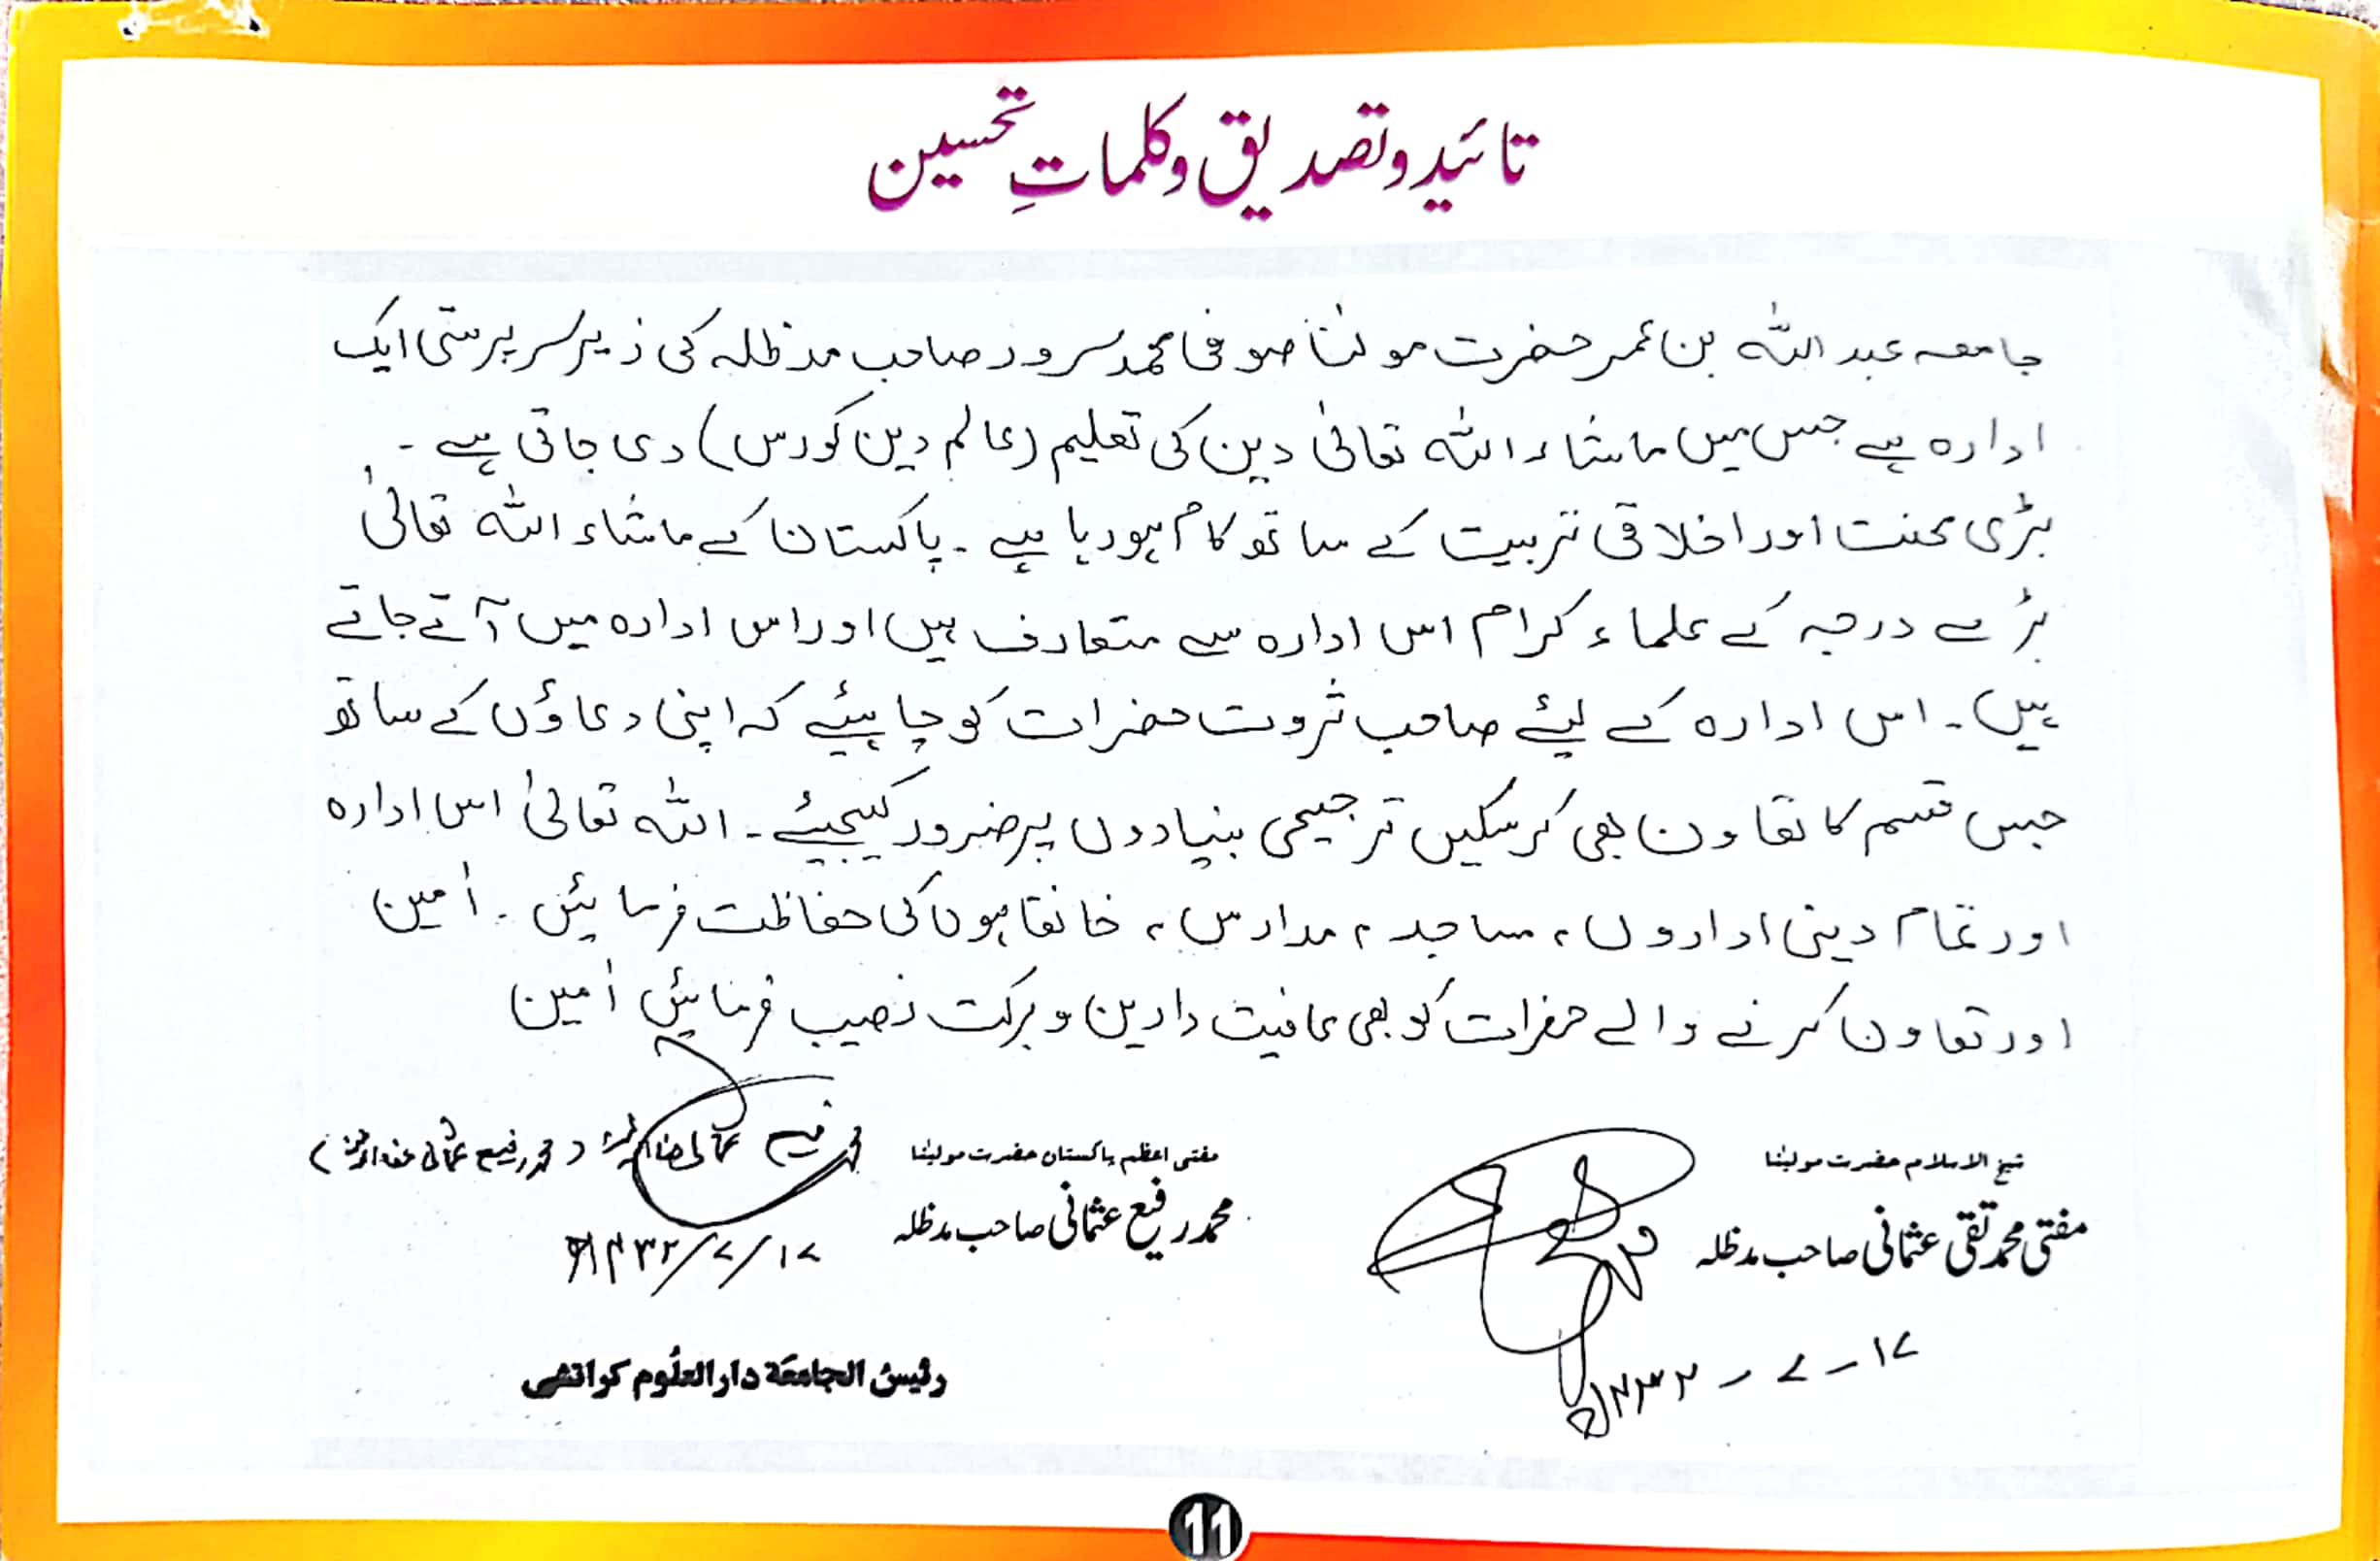 تائید و تصدیق و کلماتِ تحسین
جامعہ عبد اللہ بن عمر حضرت مولٰنا صوفی محمد سرور صاحب مدظلہ کی زیر سرپرستی ایک
ادارہ ہے جس میں ماشاء اللہ تعالیٰ دین کی تعلیم (عالم دین کورس) دی جاتی ہے ۔
بڑی محنت اور اخلاقی تربیت کے ساتھ کام ہورہا ہے ۔ پاکستان کے ماشاء اللہ تعالیٰ
بڑے درجہ کے علماء کرام اس ادارہ سے متعارف ہیں اور اس ادارہ میں آتے جاتے
ہیں ۔ اس ادارہ کے لیئے صاحب ثروت حضرات کو چاہیئے کہ اپنی دعاؤں کے ساتھ
جس قسم کا تعاون بھی کرسکیں ترجیحی بنیادوں پر ضرور کیجیئے ۔ اللہ تعالیٰ اس ادارہ
اور تمام دینی اداروں ، مساجد ، مدارس ، خانقاہوں کی حفاظت فرمایئں ۔ اٰمین
اور تعاون کرنے والے حضرات کو بھی عافیت دارین و برکت نصیب فرمایئں اٰمین
شیخ الاسلام حضرت مولیٰنا
مفتی محمد تقی عثمانی صاحب مدظلہ
۱۷ - ۷ - ۱۴۳۲ھ
مفتی اعظم پاکستان حضرت مولیٰنا
محمد رفیع عثمانی صاحب مدظلہ
(محمد رفیع عثمانی عفا اللہ عنہ)
۱۷/۷/۱۴۳۲ھ
رئیس الجامعة دار العلوم کراتشی
11